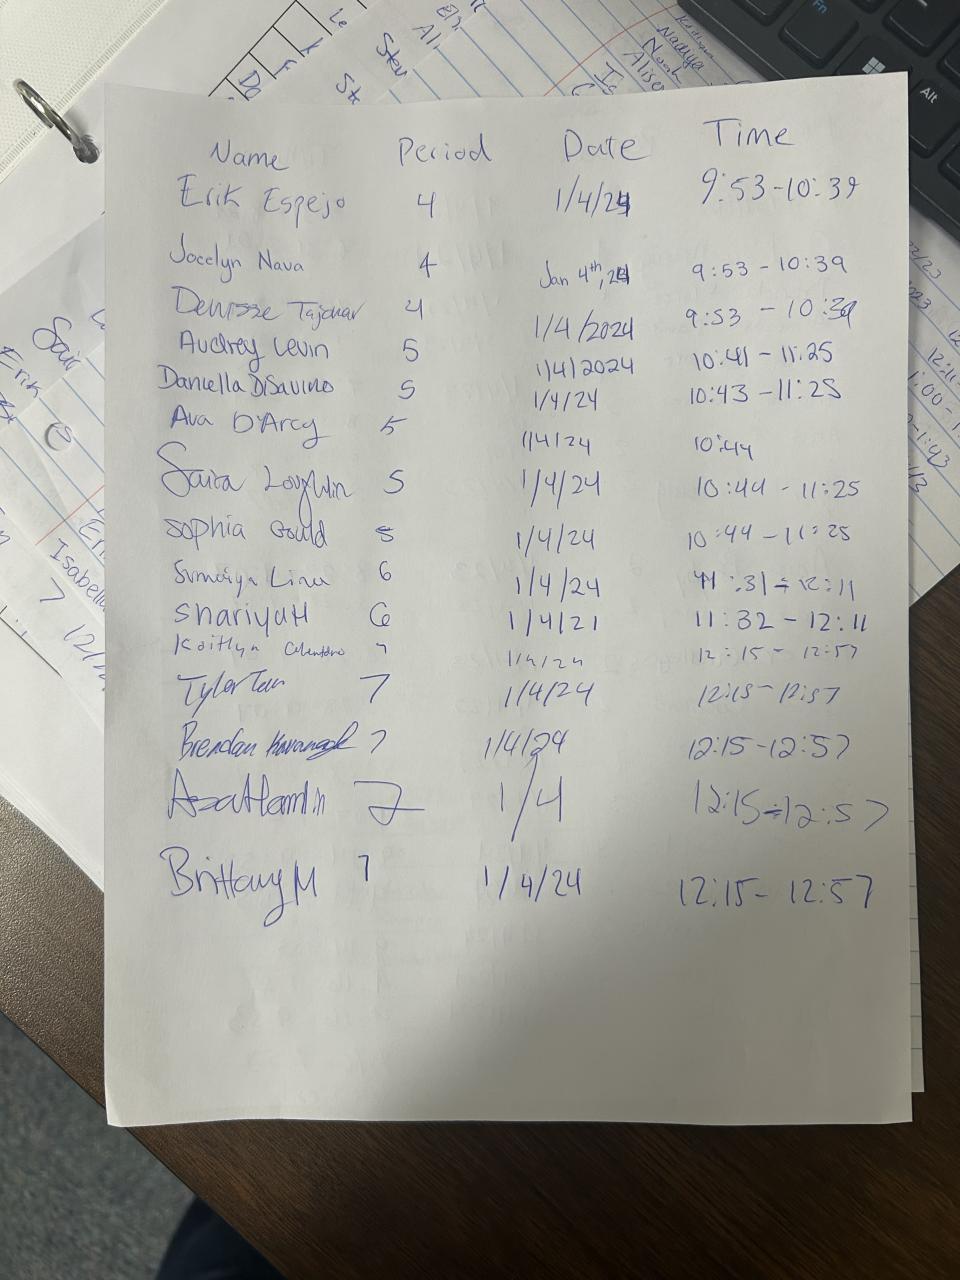 Name Period Date Time
Erik Espejo 4 1/4/24 9:53-10:39
Jocelyn Nava 4 Jan 4th, 24 9:53 - 10:39
Denisse 4 1/4/2024 9:53 - 10:39
Audrey Levin 5 1/4/2024 10:41 - 11:25
Daniella DiSavino 5 1/4/24 10:43 - 11:25
Ava D'Arcy 5 1/4/24 10:44
Saira Loughlin 5 1/4/24 10:44 - 11:25
Sophia Gould 5 1/4/24 10:44 - 11:25
Sumaiya 6 1/4/24 11:31 - 12:11
Shariyah 6 1/4/21 11:32 - 12:11
Kaitlyn 7 1/4/24 12:15 - 12:57
Tyler 7 1/4/24 12:15 - 12:57
Brendan Kavanagh 7 1/4/24 12:15-12:57
Asa Hamlin 7 1/4 12:15-12:57
Brittany M 7 1/4/24 12:15- 12:57
Nadiya
Noah
Fn
Alt
Erik
Isabella
7